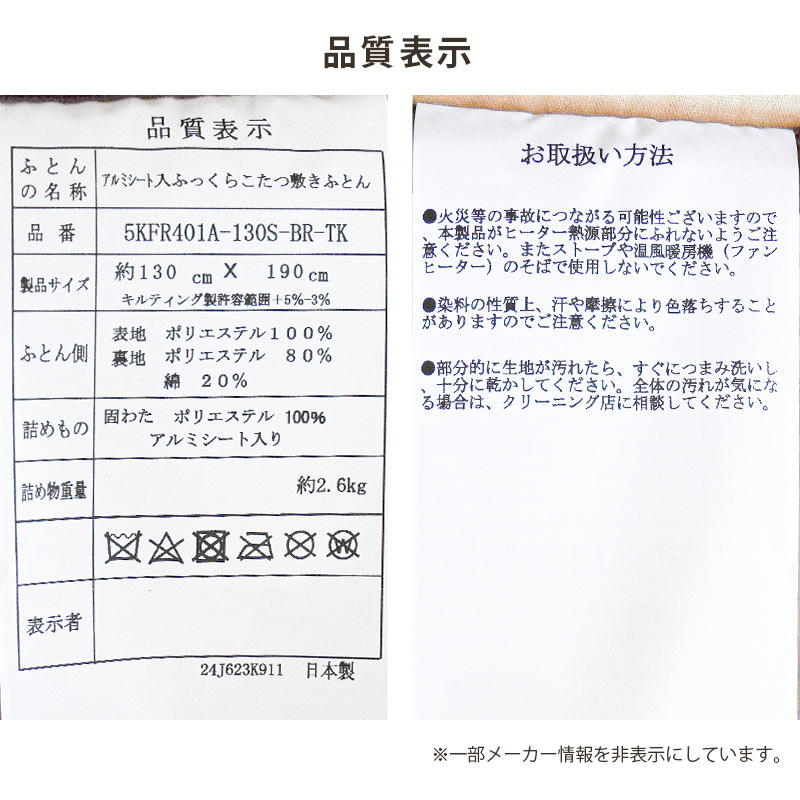 品質表示
品質表示
ふとんの名称 アルミシート入ふっくらこたつ敷きふとん
品番 5KFR401A-130S-BR-TK
製品サイズ 約130 cm X 190cm
キルティング製許容範囲+5%-3%
ふとん側 表地 ポリエステル100%
裏地 ポリエステル 80%
綿 20%
詰めもの 固わた ポリエステル 100%
アルミシート入り
詰め物重量 約2.6kg
表示者
24J623K911 日本製
お取扱い方法
●火災等の事故につながる可能性ございますので
、本製品がヒーター熱源部分にふれないようご注
意ください。またストーブや温風暖房機（ファン
ヒーター）のそばで使用しないでください。
●染料の性質上、汗や摩擦により色落ちすること
がありますのでご注意ください。
●部分的に生地が汚れたら、すぐにつまみ洗いし
、十分に乾かしてください。全体の汚れが気にな
る場合は、クリーニング店に相談してください。
※一部メーカー情報を非表示にしています。